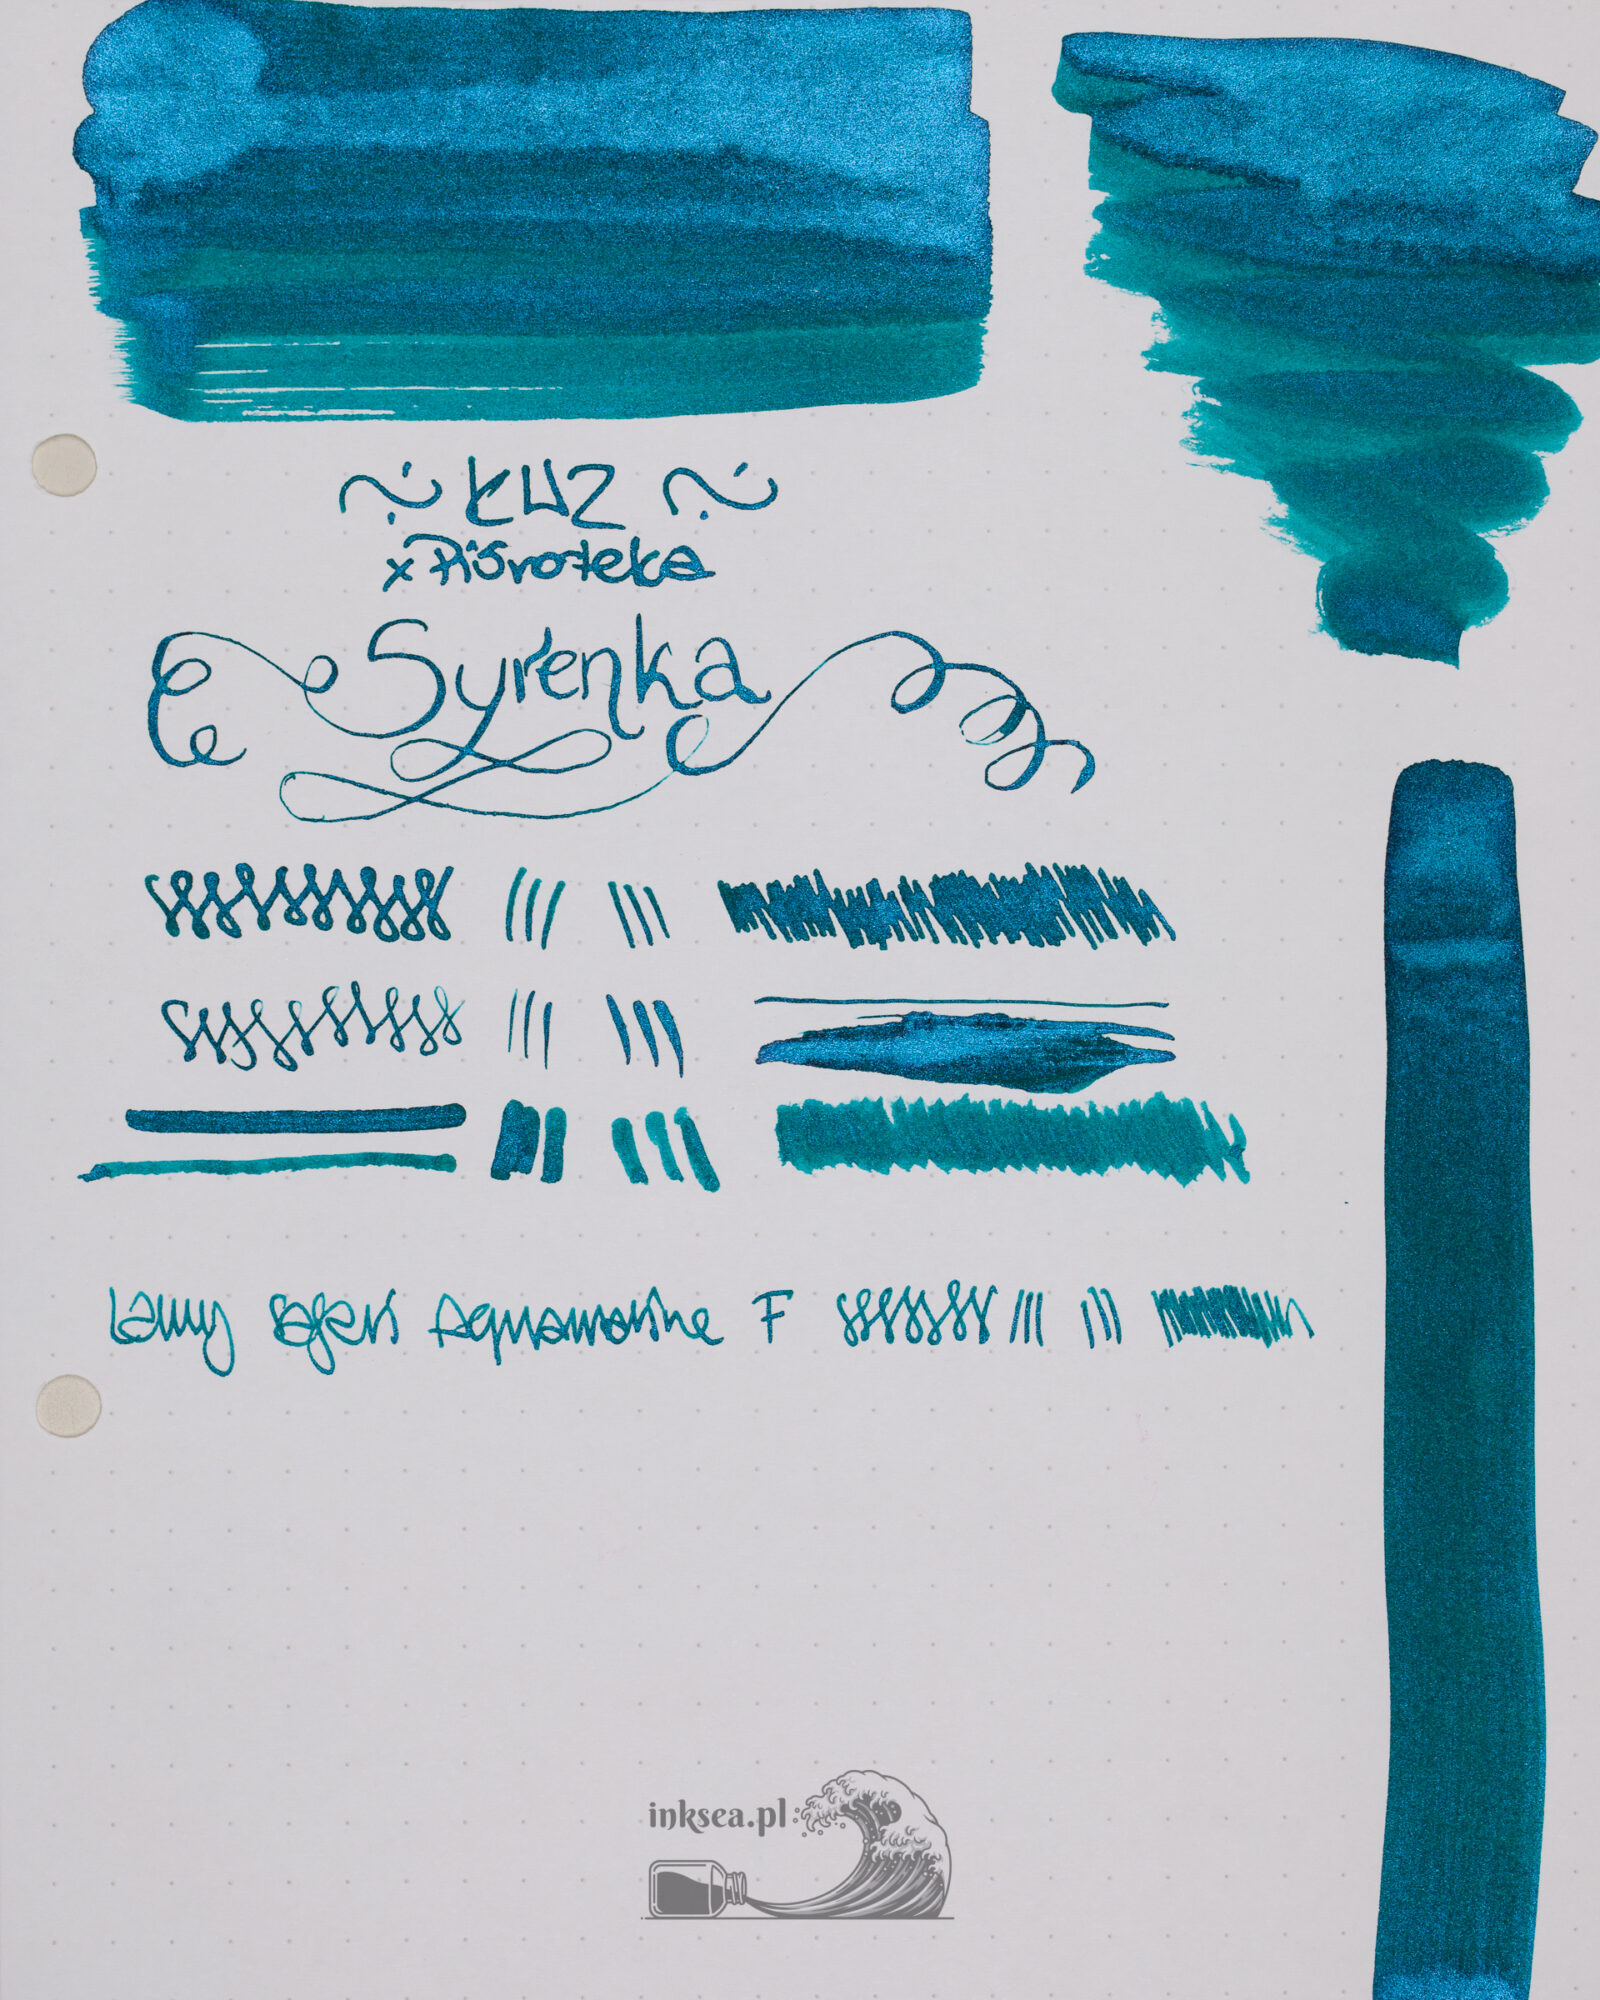 KWZ
x Pióroteka
Syrenka
Lamy Safari Aquamarine F
inksea.pl